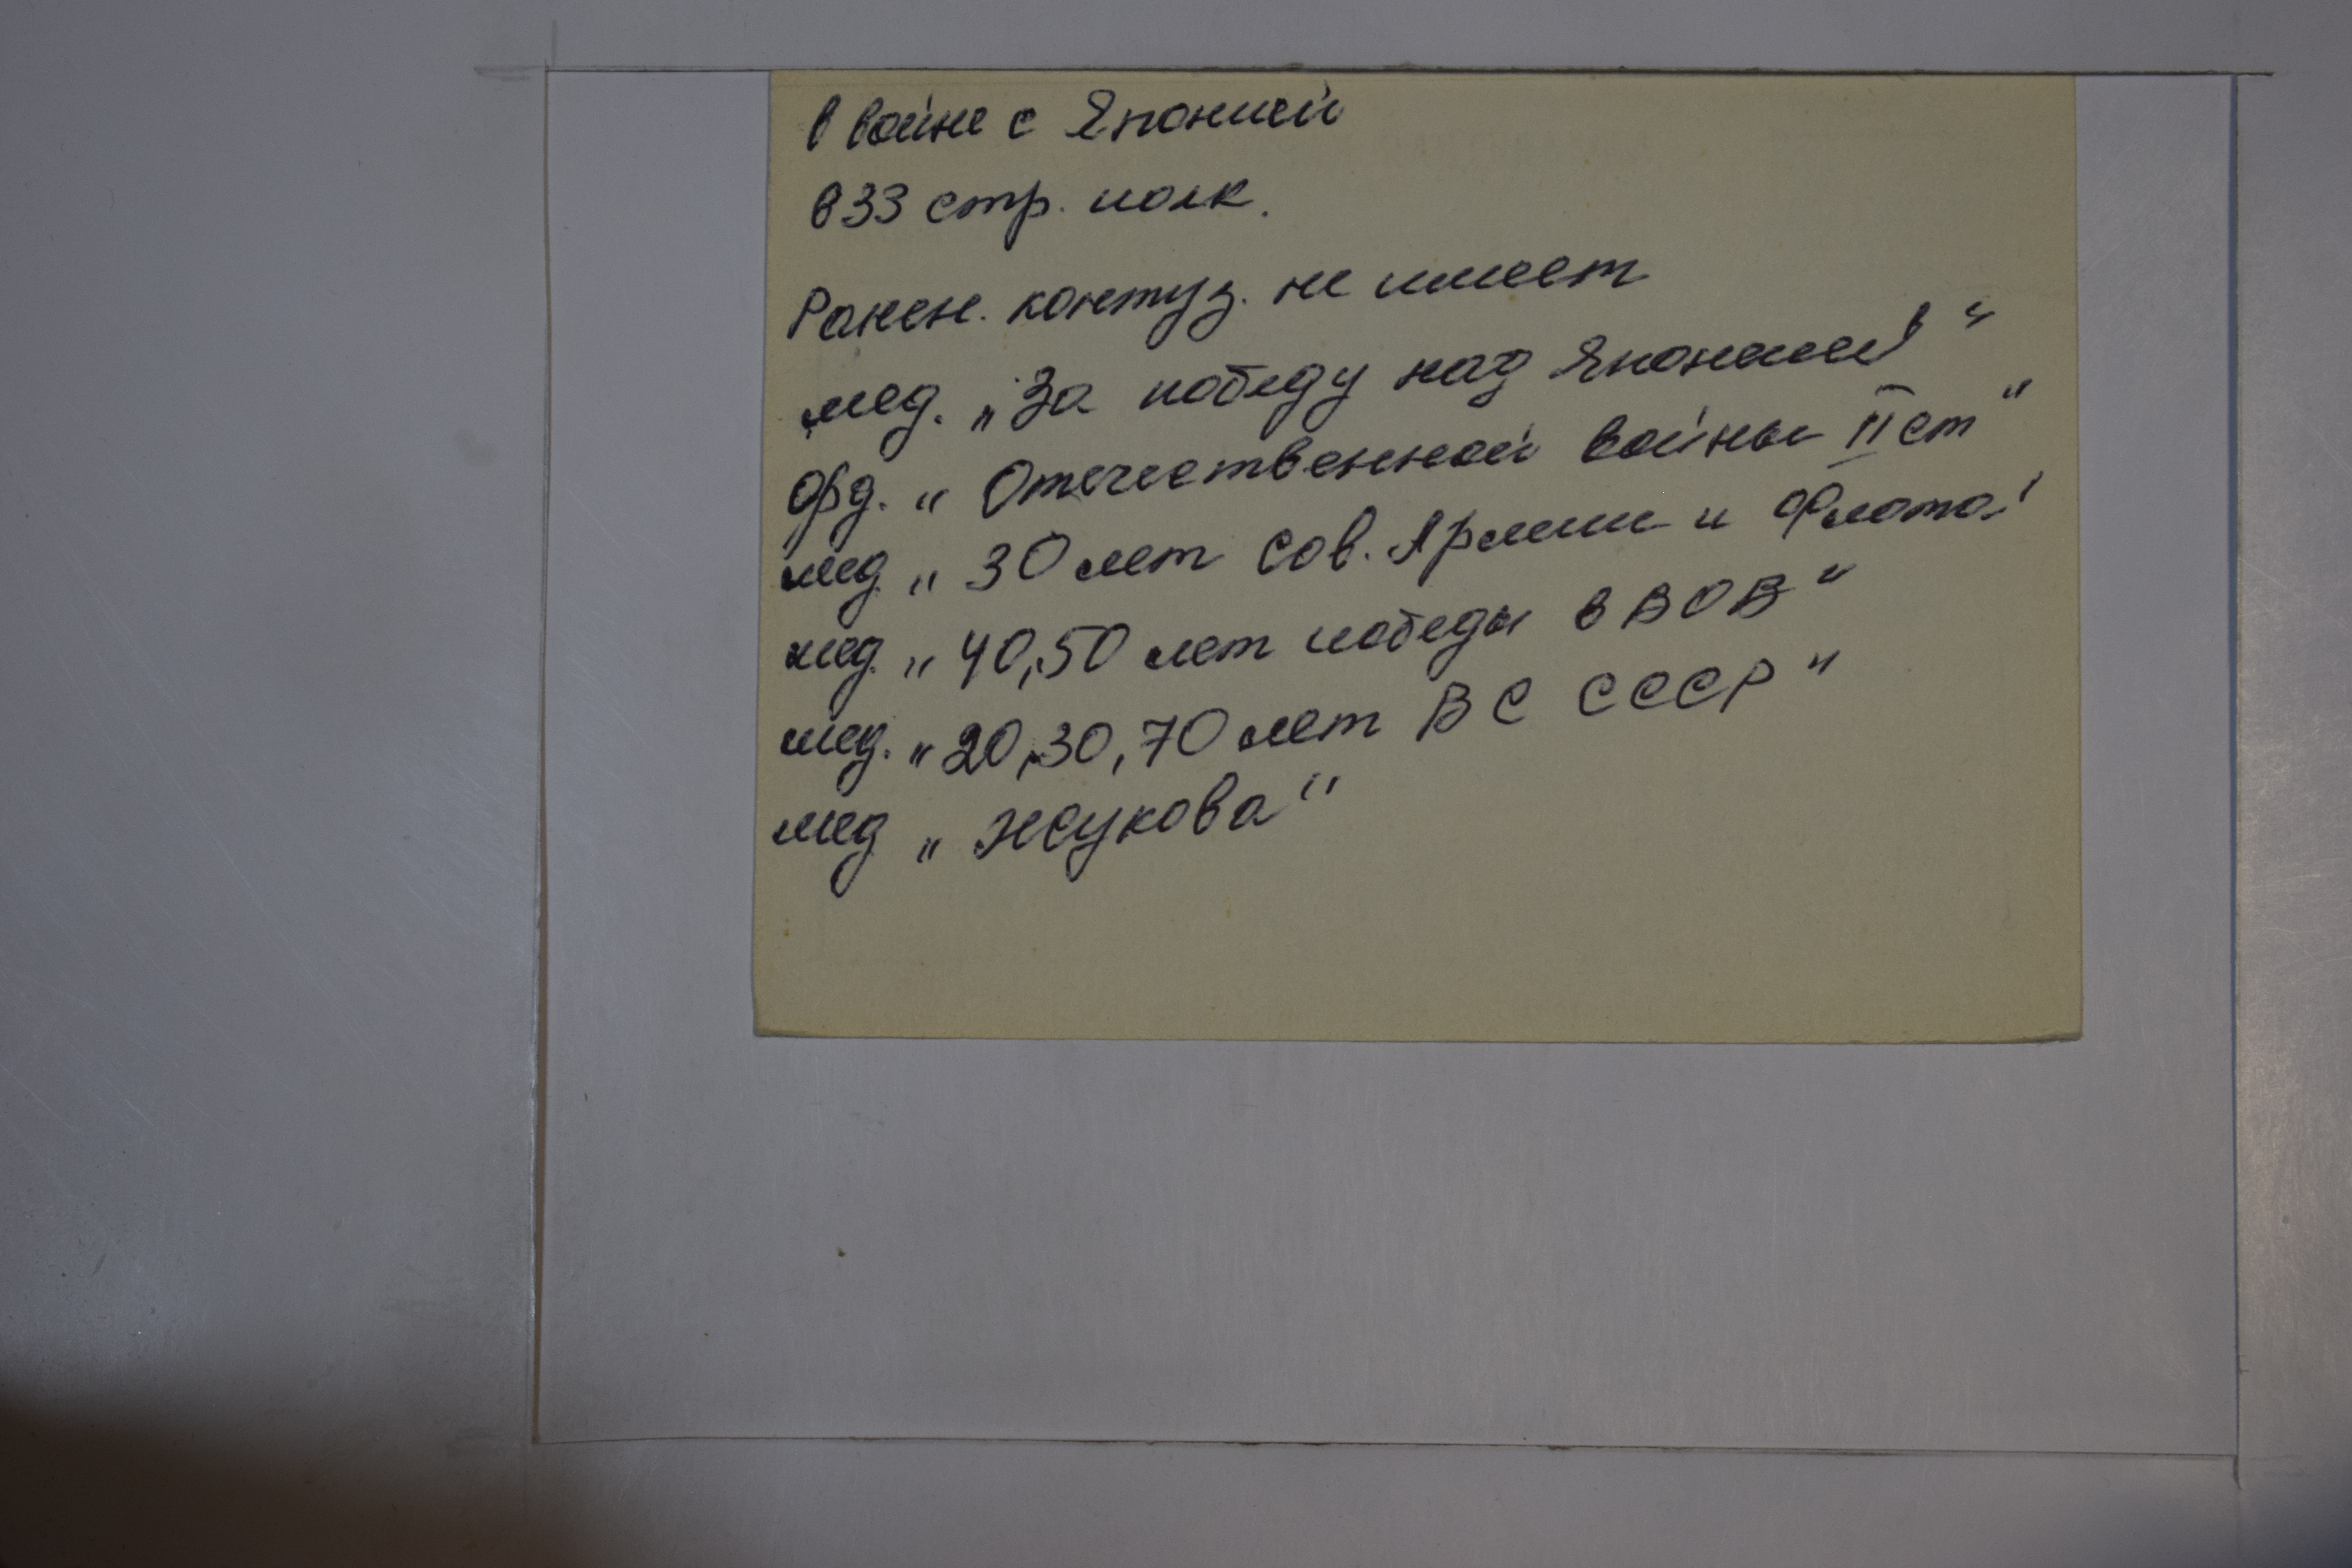 в войне с Японией
в 33 стр. полк.
Ранен. контуз. не имеет
мед. „За победу над Японией“
Орд. „Отечественной войны II ст“
мед „30 лет Сов. Армии и Флота“
мед. „40,50 лет победы в ВОВ“
мед. „20,30,70 лет ВС СССР“
мед „Жукова“